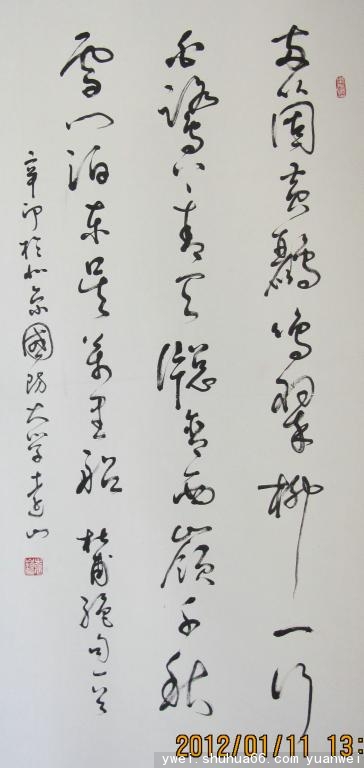 两箇黄鸝鳴翠柳一行
白鷺上青天牕含西嶺千秋
雪门泊東吴萬里船 杜甫绝句一首
辛卯於北京國防大学
2012/01/11 13:
ywei.shuhua66.com yuanwei